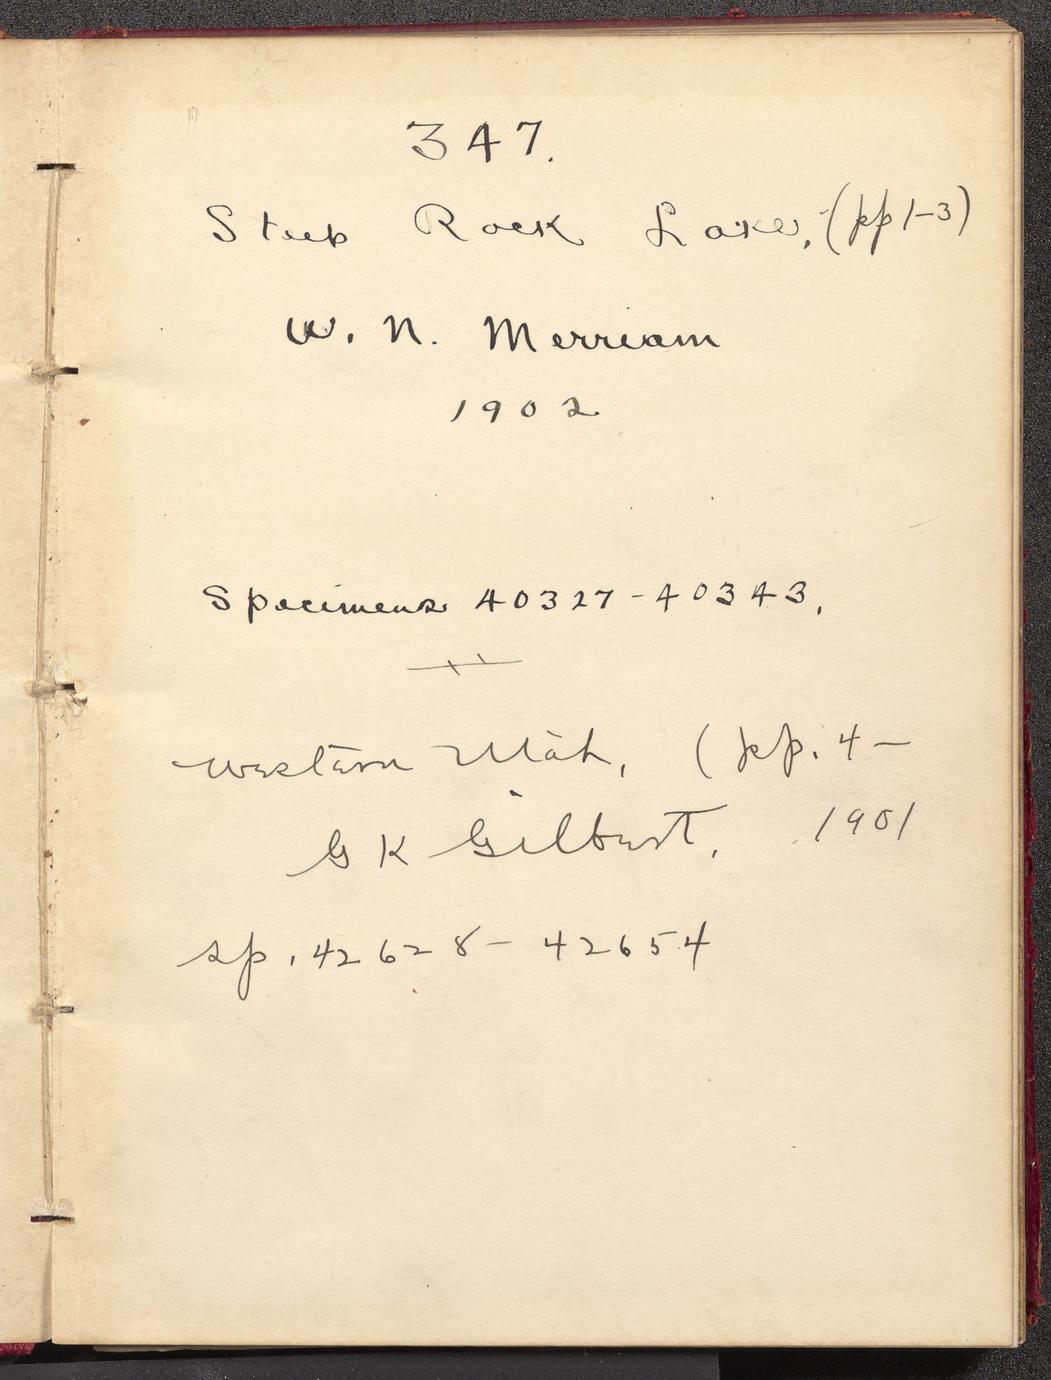 347.
Steep Rock Lake, (pp 1-3)
W. N. Merriam
1902
Specimens 40327-40343,
Western Utah, (pp. 4-
G K Gilbert, 1901
sp. 42628- 42654